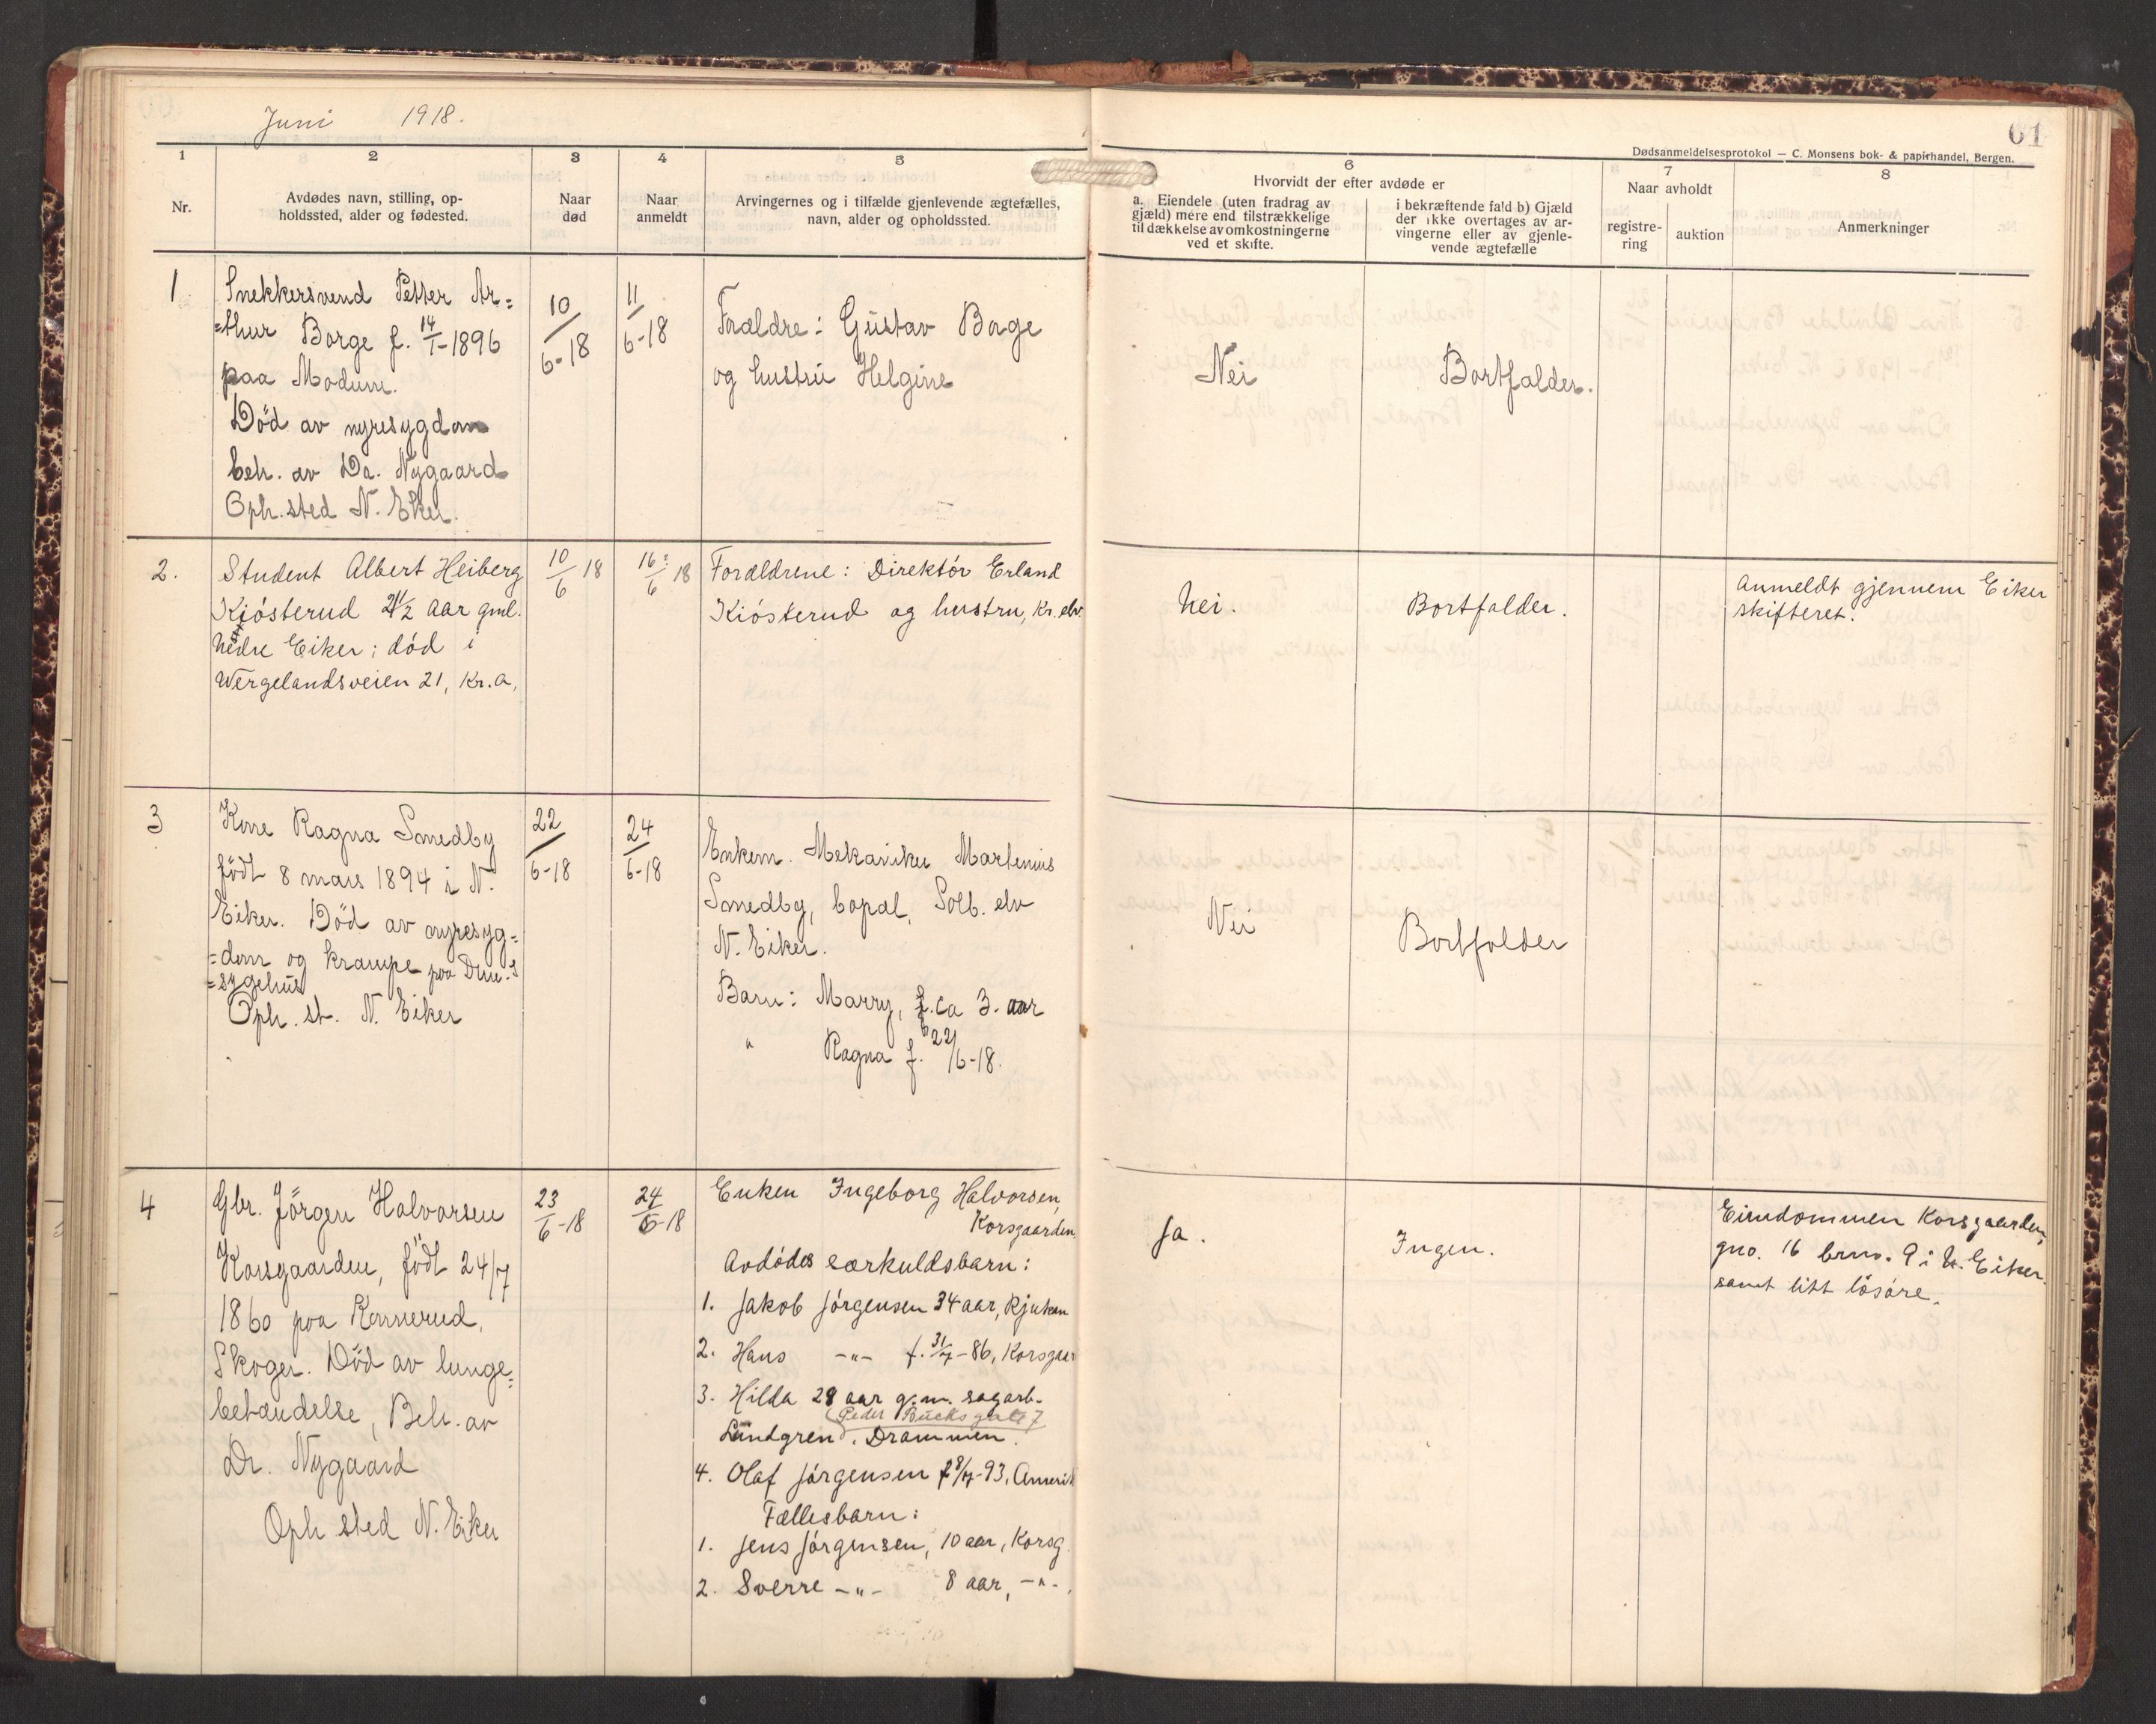 Juni 1918.
61
Dødsanmeldelsesprotokol — C. Monsens bok- & papirhandel, Bergen.
1
Nr.
2
Avdødes navn, stilling, op-
holdssted, alder og fødested.
3
Naar
død
4
Naar
anmeldt
5
Arvingernes og i tilfælde gjenlevende ægtefælles,
navn, alder og opholdssted.
6
Hvorvidt der efter avdøde er
a. Eiendele (uten fradrag av
gjæld) mere end tilstrækkelige
til dækkelse av omkostningerne
ved et skifte.
i bekræftende fald b) Gjæld
der ikke overtages av ar-
vingerne eller av gjenle-
vende ægtefælle
7
Naar avholdt
registre-
ring
auktion
8
Anmerkninger
1
Snekkersvend Petter Ar=
=thur Borge f. 14/1-1896
paa Modum.
Död av nyresygdom
beh. av Dr. Nygaard
Oph.sted N. Eker.
10/6-18
11/6-18
Forældre: Gustav Borge
og hustru Helgine
Nei
Bortfalder.
2.
Student Albert Heiberg
Kiösterud 21½ aar gml.
Nedre Eiker; död i
Wergelandsveien 21, Kr.a,
10/6 18
16/6 18
Forældrene: Direktör Erland
Kiösterud og hustru, Kr. elv.
Nei.
Bortfalder.
Anmeldt gjennem Eiker
skifteret.
3
Kone Ragna Smedby
födt 8 mars 1894 i N.
Eiker. Död av nyresyg=
=dom og krampe paa Dm.s
=sygehus
Oph. st. N. Eiker
22/6-18
24/6-18
Enkem. Mekaniker Martenius
Smedby, bopal. Solb. elv
N. Eiker.
Barn: Marry, f. ca 3. aar
" Ragna f. 22/6-18.
Nei
Bortfalder
4
Gbr. Jörgen Halvorsen
Korsgaarden, födt 24/7
1860 paa Konnerud,
Skoger. Död av lunge=
betændelse, Beh. av
Dr. Nygaard
Oph sted N. Eiker
23/6-18
24/6-18
Enken Ingeborg Halvorsen,
Korsgaarden.
Avdödes særkuldsbarn:
1. Jakob Jörgensen 34 aar, Rjukan
2. Hans -"- f. 31/7-86, Korsgaar
3. Hilda 28 aar g.m. sagarb.
(Peder Bucks gate 7
Lundgren. Drammen.
4. Olaf Jörgensen f 8/7-93, Amerik
Fællesbarn:
1. Jens Jörgensen, 10 aar, Korsg.
2. Sverre -"- 8 aar, -"-.
Ja.
Ingen.
Eiendommen Korsgaarden,
gno. 16 brno. 9 i N. Eiker.
samt litt lösöre.